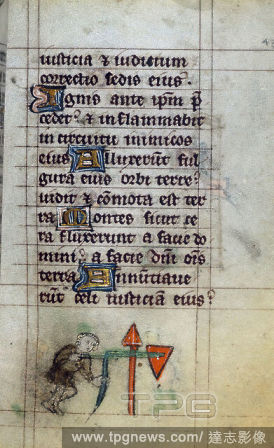 iusticia & iudicium
correctio sedis eius .
Ignis ante ip̄m p̄
cedet : & inflammabit
in circuitu inimicos
eius Alluxerūt ful
gura eius orbi terre :
uidit & cōmota est ter
ra Montes sicut ce
ra fluxerunt a facie do
mini : a facie dn̄i om̄s
terra Annunciaue
rūt celi iusticiā eius :
TPG
www.tpgnews.com/ 達志影像